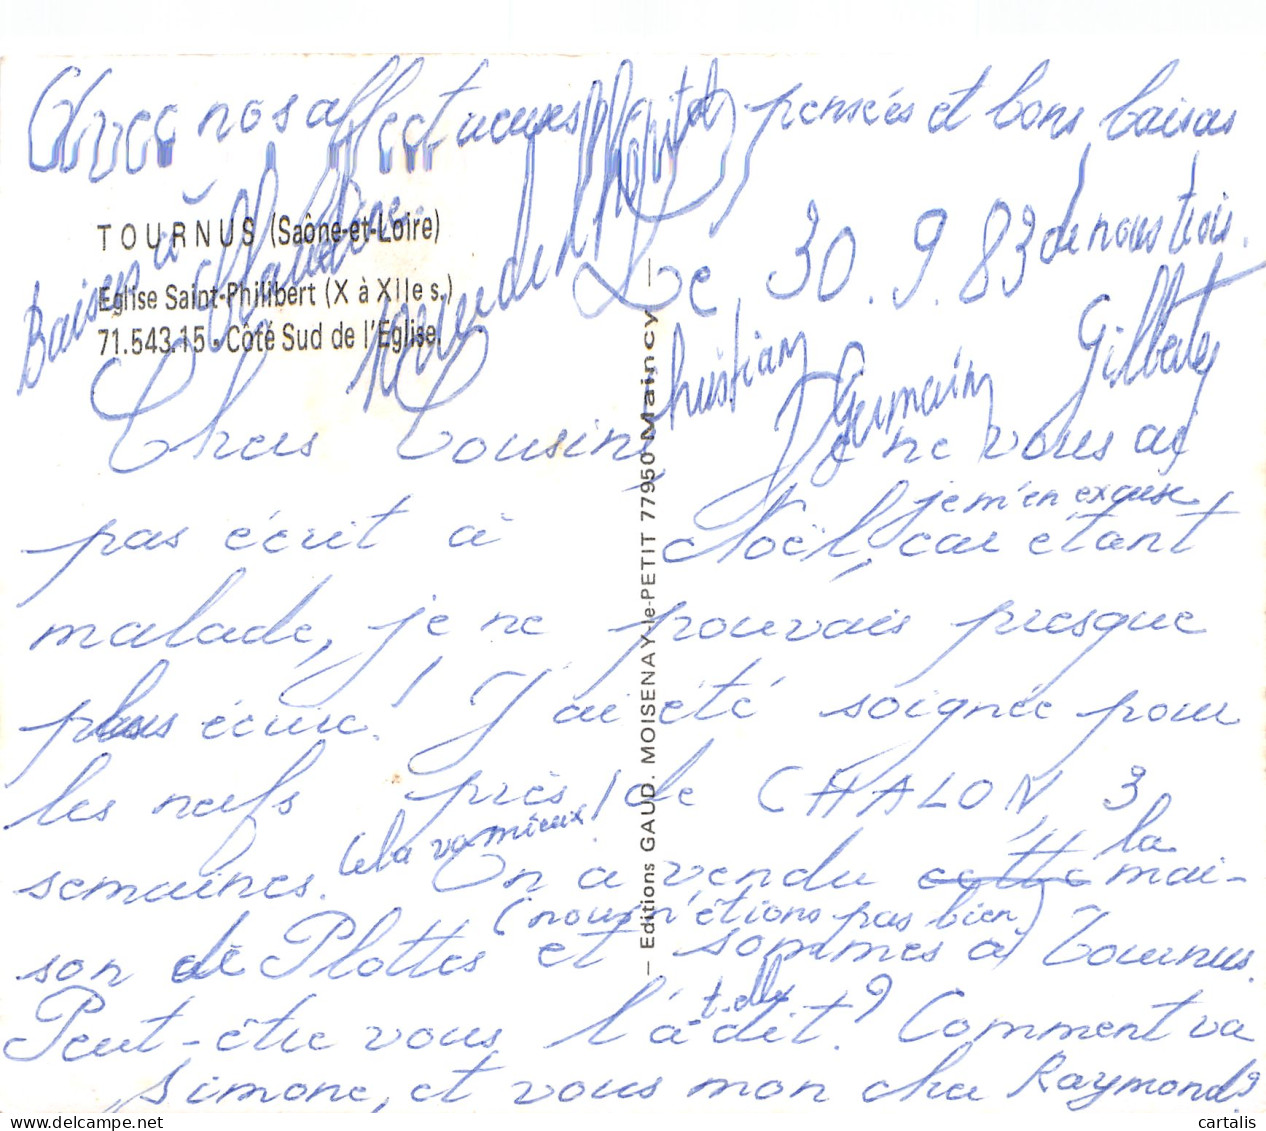 Avec nos affectueuses pensées et bons baisers
de nous trois.
TOURNUS (Saône-et-Loire)
Eglise Saint-Philibert (X à XIIe s.)
71.543.15 - Côté Sud de l'Eglise.
Baisers à Claudine
de l'Hôpital
Le 30.9.83
Christian Germain Gilberte
Chers Cousins, Je ne vous ai
pas écrit à Noël, car étant
je m'en excuse
malade, je ne pouvais presque
plus écrire! J'ai été soignée pour
les nerfs près de CHALON, 3
semaines. Cela va mieux! On a vendu cette la mai-
(nous n'étions pas bien)
son de Plottes et sommes à Tournus.
Peut-être vous l'a-t-elle dit? Comment va
Simone, et vous mon cher Raymond?
— Editions GAUD. MOISENAY-le-PETIT 77950 Maincy —
cartalis